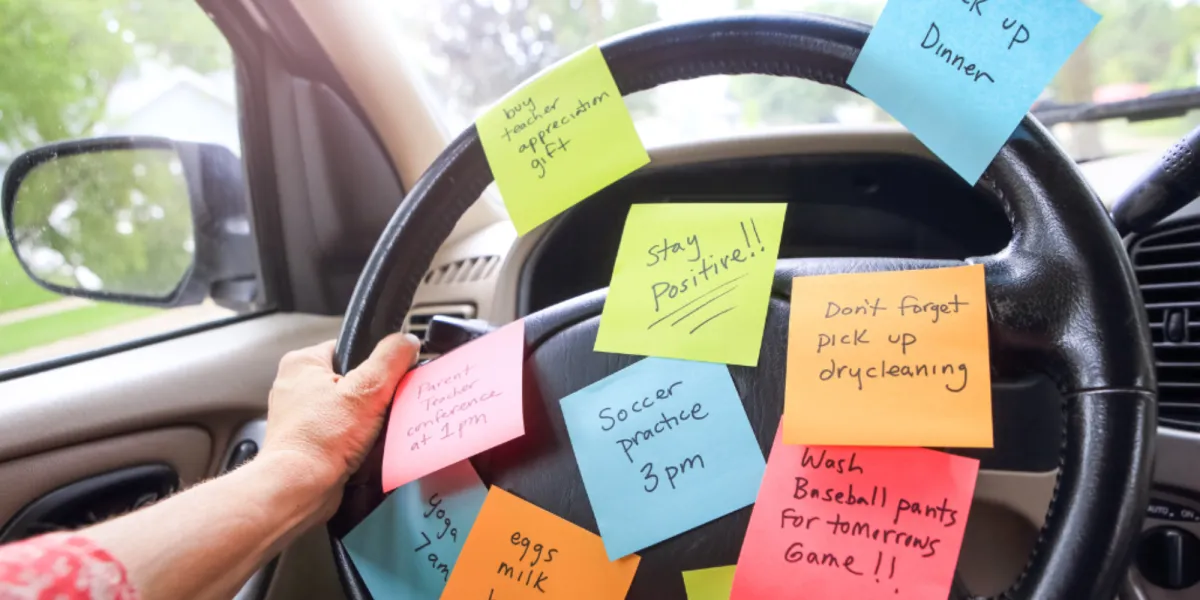 buy
teacher
appreciation
gift
up
Dinner
Stay
Positive!!
Don't forget
pick up
drycleaning
Parent
Teacher
conference
at 1pm
Soccer
practice
3pm
Wash
Baseball pants
For tomorrows
Game!!
yoga
7am
eggs
milk
AUTO